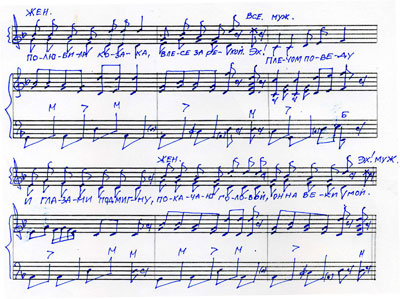 ЖЕН. ВСЕ. МУЖ.
ПО-ЛЮ-БИ-ЛА КО-ЗА-КА, В ЛЕ-СЕ ЗА РЕ-КОЙ. ЭХ! ПЛЕ-ЧОМ ПО-ВЕ-ДУ
М 7 М 7 М 7 Б
ЖЕН. ЭХ! МУЖ.
И ГЛА-ЗА-МИ ПОДМИГ-НУ, ПО-КА-ЧА-Ю ГО-ЛО-ВОЙ, ОН НА ВЕ-КИ МОЙ.
7 М М 7 М 7